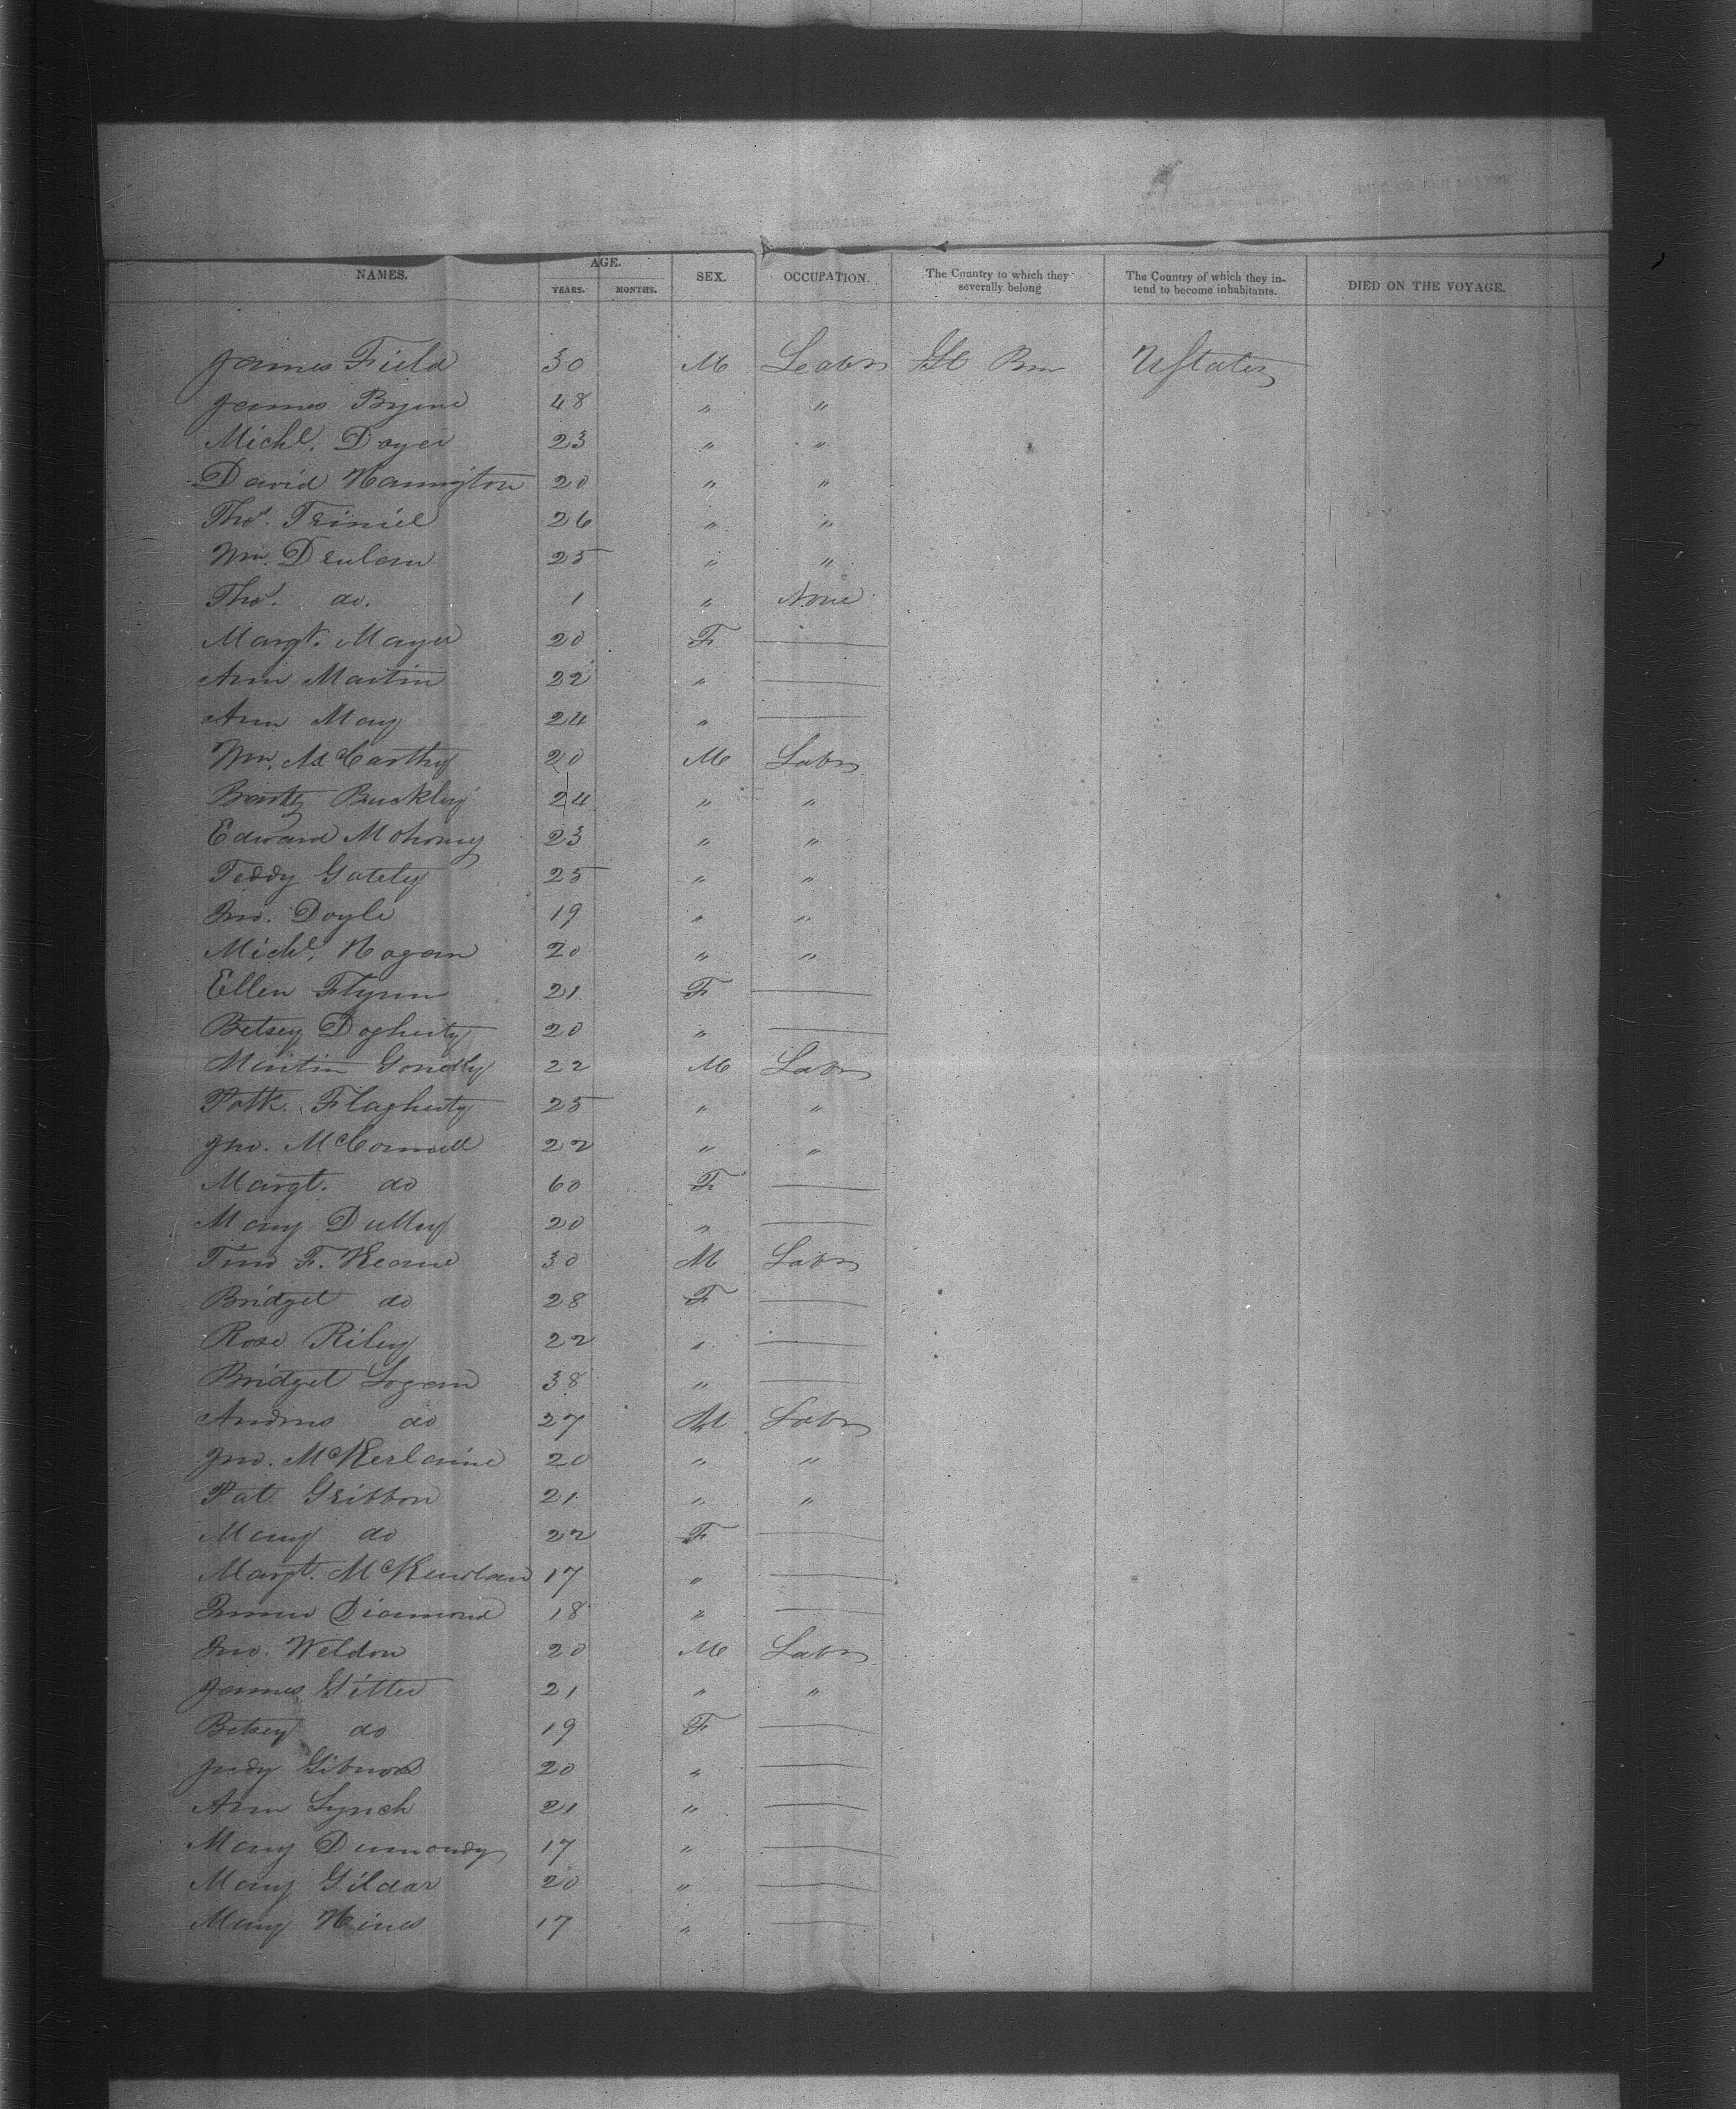 NAMES. AGE. SEX. OCCUPATION. The Country to which they severally belong The Country of which they intend to become inhabitants. DIED ON THE VOYAGE.
YEARS. MONTHS.
James Field 30 M Labr Gt Brn UStates
James Byrne 48 " "
Michl. Doyer 23 " "
David Hannington 20 " "
Thos. 26 " "
Wm. Denlan 25 " "
Thos. do. 1 " None
Margt. Mayer 20 F —
Ann Martin 22 " —
Ann May 24 " —
Wm. McCarthy 20 M Labr
Barty Buckley 24 " "
Edward Mohony 23 " "
Teddy Gately 25 " "
Jno. Doyle 19 " "
Michl. Hogan 20 " "
Ellen Flynn 21 F —
Betsey Dogherty 20 " —
Martin Gonolly 22 M Labr
Patk. Flagherty 25 " "
Jno. McConnell 22 " "
Margt. do 60 F —
Mary Duffy 20 " —
Timo F. Keane 30 M Labr
Bridget do 28 F —
Rose Riley 22 " —
Bridget Logan 38 " —
Andrew do 27 M Labr
Jno. McKerlanie 20 " "
Pat Gribbon 21 " "
Mary do 22 F —
Margt. 17 " —
Diamond 18 " —
Jno. Weldon 20 M Labr
James Gitter 21 " "
Betsey do 19 F —
Judy 20 " —
Ann Lynch 21 " —
Mary 17 " —
Mary Gildar 20 " —
Mary Hines 17 " —